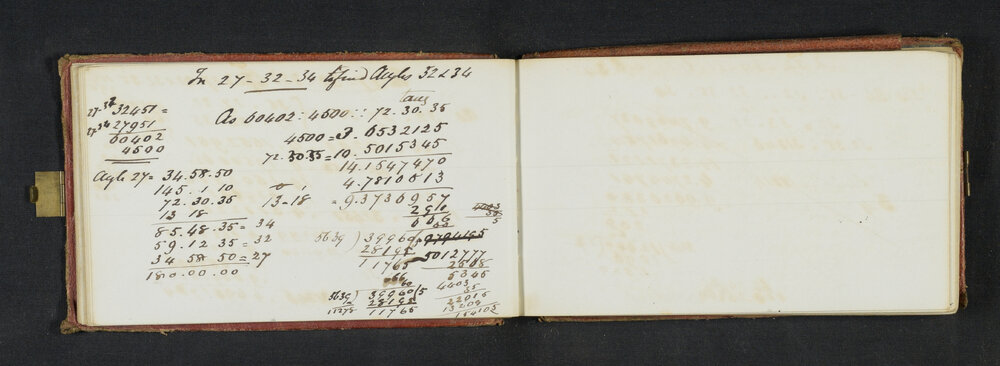 In 27-32-34 to find Angles 32 & 34
27-32 32451 =
27.34 27951
60402
4500
Tang
As 60402 : 4500 :: 72.30.35
4500 = 3.6532125
72.30.35 = 10.5015345
14.1547470
4.7810513
13-18 = 9.3736957
Angle 27 = 34.58.50
145.1.10
72.30.35
13 18
85.48.35 = 34
59.12 35 = 32
34 58 50 = 27
180.00.00
5639 ) 39960
28195
11765
5639 ) 39960 (5
28195
11765
5012777
2508
5345
4403
35
22015
13209
154105